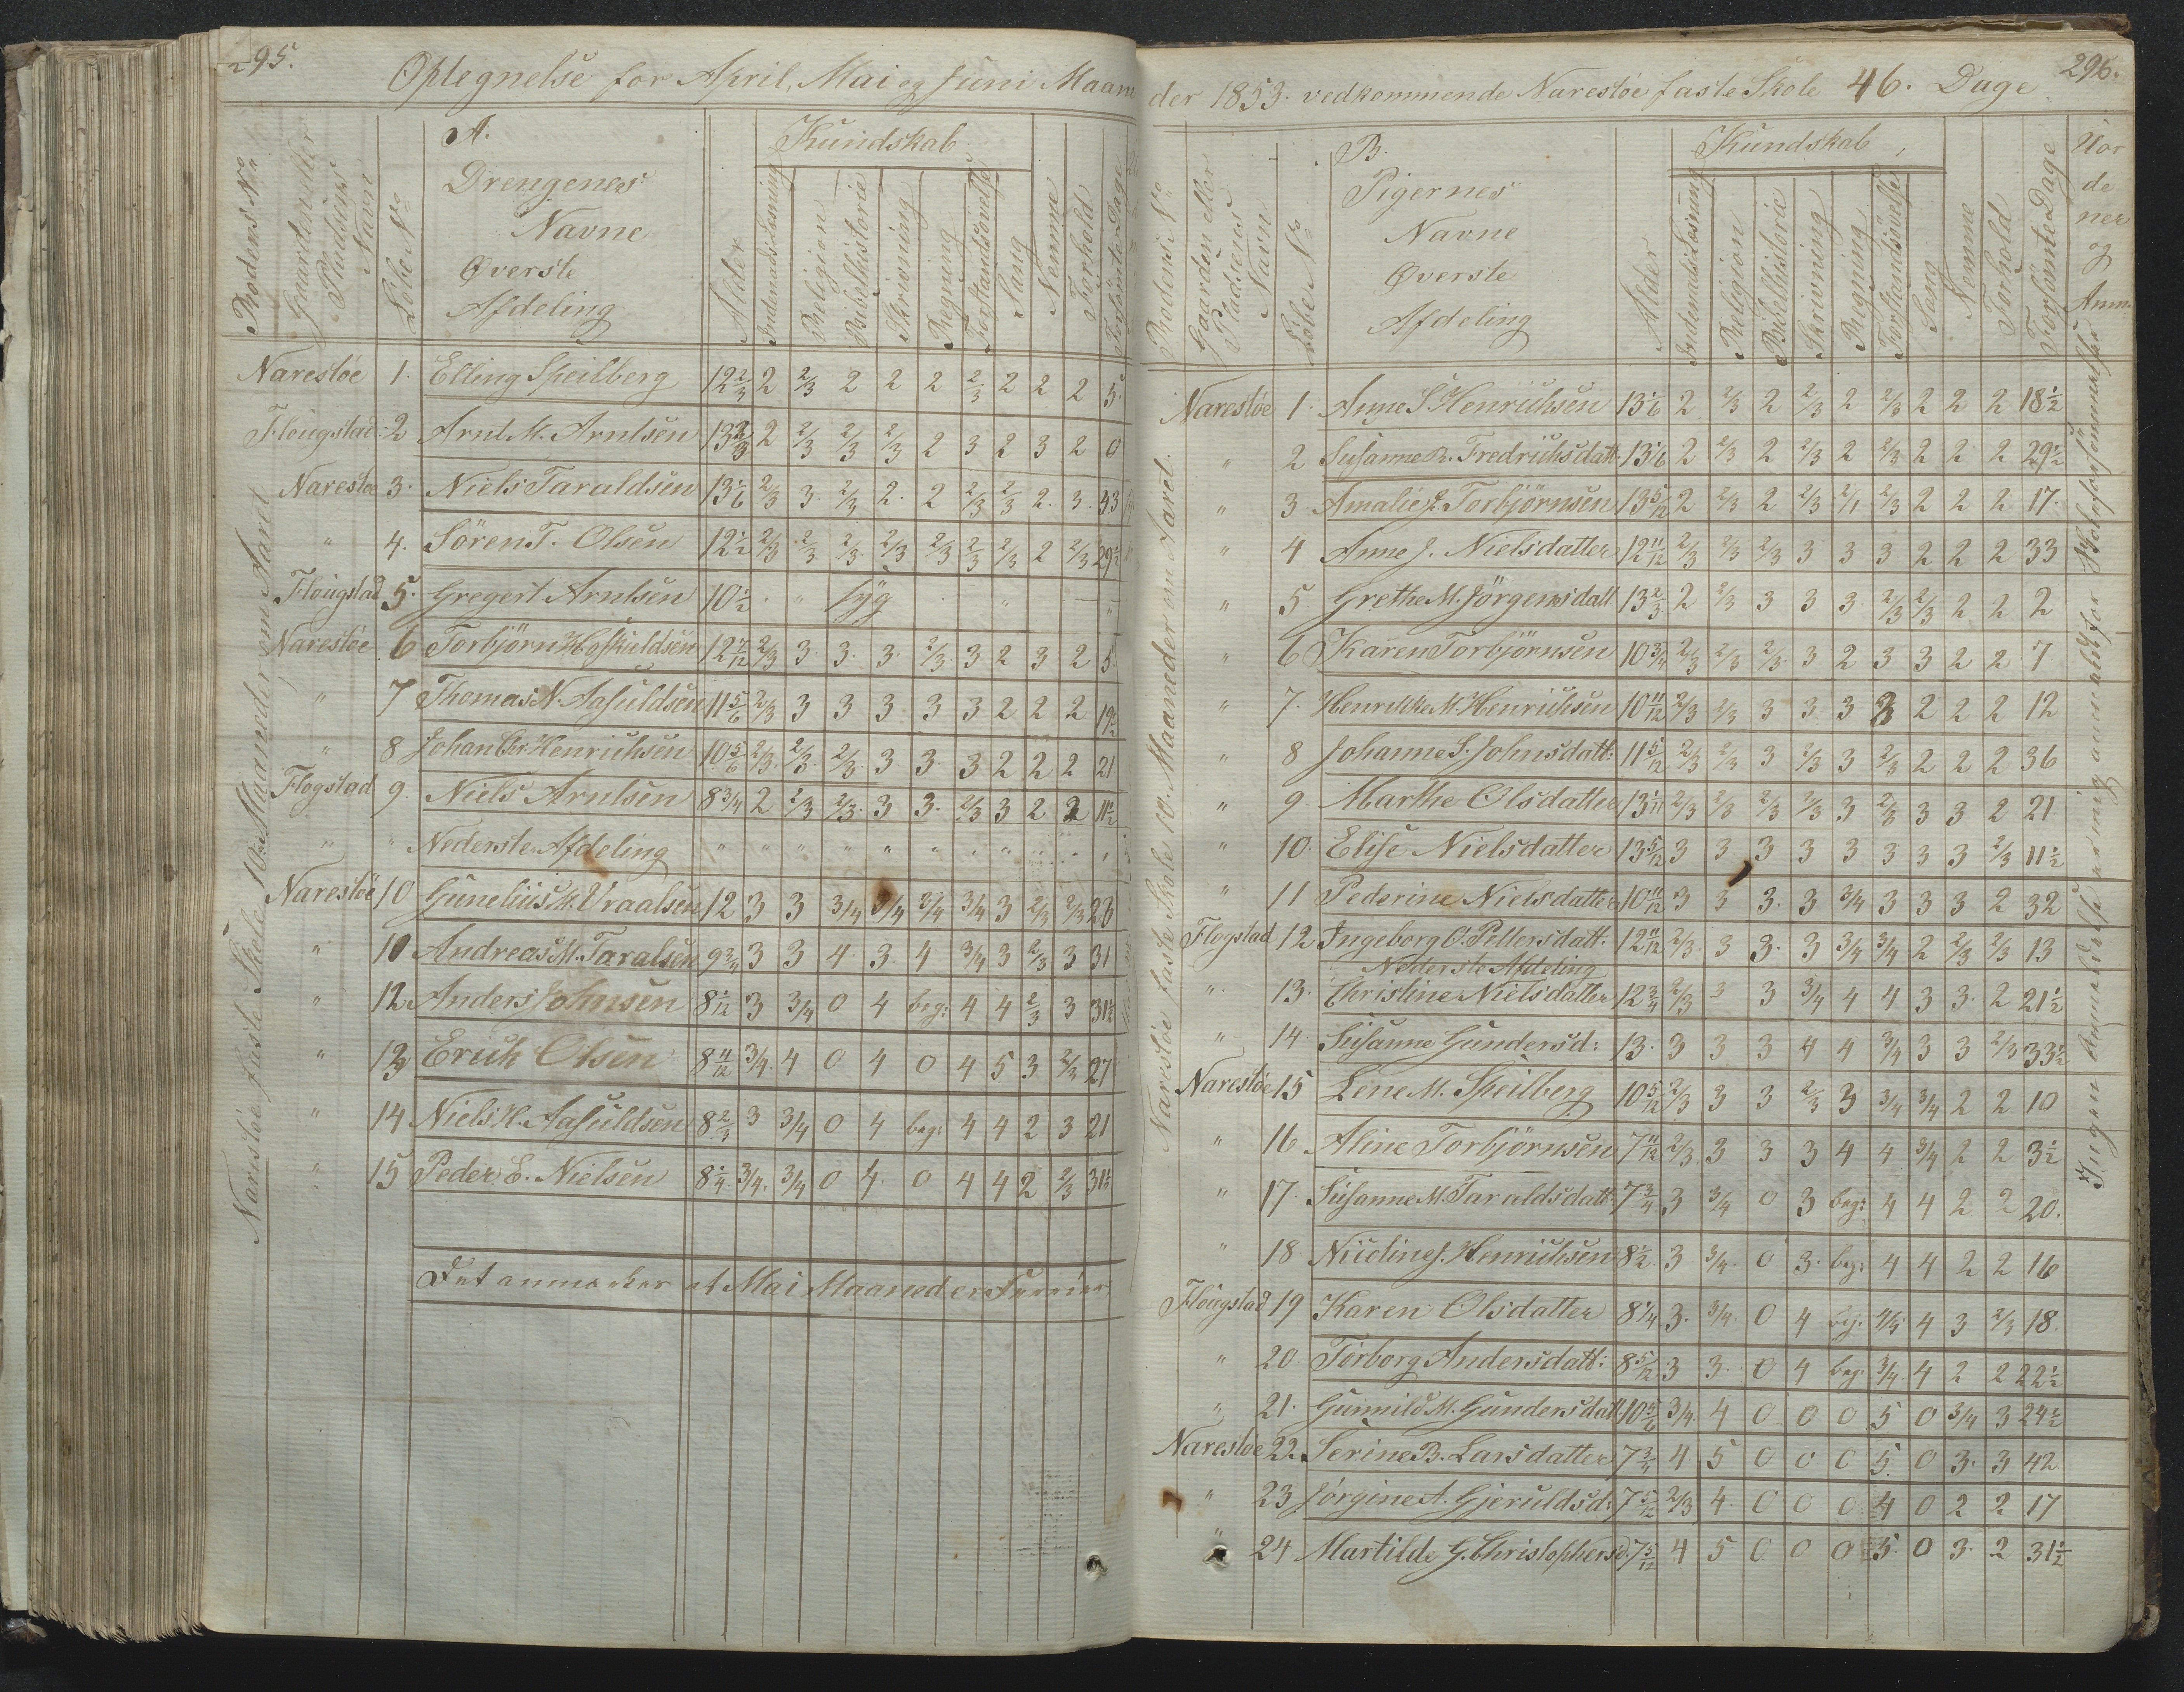 295.
Optegnelse for April, Mai og Juni Maam
Rodens No
Gaarden eller
Pladsens
Navn
Löbe No
A.
Drengenes
Navne
Øverste
Afdeling
Alder
Kundskab
Indenads Læsning
Religion
Bibelhistorie
Skrivning
Regning
Forstandsövelse
Sang
Nemme
Forhold
Forsömte Dage
Narestöe faste Skole 10. Maaneder om Aaret
Narestöe 1. Elling Speilberg 12 2/3 2 2/3 2 2 2 2/3 2 2 2 5.
Flougstad 2 Arnt M. Arntsen 13 2/3 2 2/3 2/3 2/3 2 3 2 3 2 0
Narestoe 3. Niels Taraldsen 13 1/6 2/3 3. 2/3 2. 2 2/3 2/3 2. 3. 43
" 4. Sören T. Olsen 12 1/2 2/3 2/3 2/3 2/3 2/3 2/3 2/3 2 2/3 29 1/2
Flougstad 5. Gregert Arntsen 10 1/2 " syg " "
Narestöe 6 Torbjörn Hofkuldsen 12 7/12 2/3 3. 3. 3. 2/3 3 2 3 2 5.
" 7 Thomas N. Aasuldsen 11 5/6 2/3 3 3 3 3 3 2 2 2 19 1/2
" 8 Johan Chr. Henrichsen 10 5/6 2/3 2/3 2/3 3. 3. 3 2 2 2 21
Flogstad 9. Niels Arntsen 8 3/4 2 2/3 2/3 3 3. 2/3 3 2 2 11 1/2
" " Nederste Afdeling " " " " " " " "
Narestöe 10 Gunelius K. Vraalsen 12 3 3 3/4 3/4 3/4 3/4 3 2/3 2/3 26
" 11 Andreas M. Taralsen 9 3/4 3 3 4 3. 4 3/4 3 2/3 3 31
" 12 Anders Johnsen 8 1/12 3 3/4 0 4 beg: 4 4 2/3 3 31 1/2
" 13 Erich Olsen 8 11/12 3/4 4 0 4 0 4 5 3 2/3 27
" 14 Niels K. Aasuldsen 8 2/3 3 3/4 0 4 beg: 4 4 2 3 21
" 15 Peder E. Nielsen 8 1/4 3/4. 3/4 0 4. 0 4 4 2 2/3 31 1/2
Det anmærkes at Mai Maaned er Ferier
296.
der 1853. vedkommende Narestöe faste Skole 46. Dage
Rodens No
Gaarden eller
Pladsens
Navn
Löbe No
B.
Pigernes
Navne
Øverste
Afdeling
Alder
Kundskab
Indenads Læsning
Religion
Bibelhistorie
Skrivning
Regning
Forstandsövelse
Sang
Nemme
Forhold
Forsömte Dage
Uor
de
ner
og
Anm.
Narestöe faste Skole 10. Maaneder om Aaret.
Narestöe 1. Anne S Henrichsen 13 1/6 2 2/3 2 2/3 2 2/3 2 2 2 18 1/2
" 2 Susanne B. Fredrichsdatt 13 1/6 2 2/3 2 2/3 2 2/3 2 2 2 29 1/2
" 3 Amalie J. Torbjörnsen 13 5/12 2 2/3 2 2/3 2/1 2/3 2 2 2 17.
" 4 Anne J. Nielsdatter 12 11/12 2/3 2/3 2/3 3 3 3 2 2 2 33
" 5 Grethe M. Jörgensdatt 13 2/3 2 2/3 3 3 3 2/3 2/3 2 2 2
" 6 Karen Torbjörnsen 10 3/4 2/3 2/3 2/3 3 2 3 3 2 2 7
" 7. Henrikke M. Henrichsen 10 11/12 2/3 2/3 3 3 3 3 2 2 2 12
" 8 Johanne S. Johnsdatt: 11 5/12 2/3 2/3 3 2/3 3 2/3 2 2 2 36
" 9 Marthe Olsdatter 13 1/11 2/3 2/3 2/3 2/3 3 2/3 3 3 2 21
" 10. Elise Nielsdatter 13 5/12 3 3 3 3 3 3 3 3 2/3 11 1/2
" 11 Pederine Nielsdatter 10 11/12 3 3 3. 3 3/4 3 3 3 2 32
Flogstad 12 Ingeborg O. Pettersdatt. 12 11/12 2/3. 3 3. 3 3/4 3/4 2 2/3 2/3 13
Nederste Afdeling
" 13. Christine Nielsdatter 12 3/4 2/3 3 3 3/4 4 4 3 3. 2 21 1/2
" 14. Susanne Gundersd: 13. 3 3 3 4 4 3/4 3 3 2/3 33 1/2
Narestöe 15 Lene M. Speilberg 10 5/12 2/3 3 3 2/3 3 3/4 3/4 2 2 10
" 16 Aline Torbjörnsen 7 11/12 2/3 3 3 3 4 4 3/4 2 2 3 1/2
" 17. Susanne M. Taraldsdatt 7 3/4 3 3/4 0 3 beg: 4 4 2 2 20.
" 18 Nicoline J. Henrichsen 8 1/2 3 3/4 0 3. beg: 4 4 2 2 16
Flougstad 19 Karen Olsdatter 8 1/4 3. 3/4 0 4 beg. 4/5 4 3 2/3 18
" 20. Torborg Andersdatt: 8 5/12 3 3. 0 4 beg. 3/4 4 2 2 22 1/2
" 21. Gunnild M. Gundersdatt 10 5/6 3/4. 4 0 0 0 5 0 3/4 3 24 1/2
Narestoe 22. Serine B. Larsdatter 7 3/4 4 5 0 0 0 5. 0 3. 3 42
" 23 Jörgine A. Gjeruldsd: 7 5/12 2/3 4. 0 0 0 4 0 2 2 17
" 24. Martilde G. Christophersd. 7 5/12 4 5 0 0 0 5. 0 3. 2 31 1/2
Ingen Anmældelse er mig anmeldt for Skoleforsömmelser